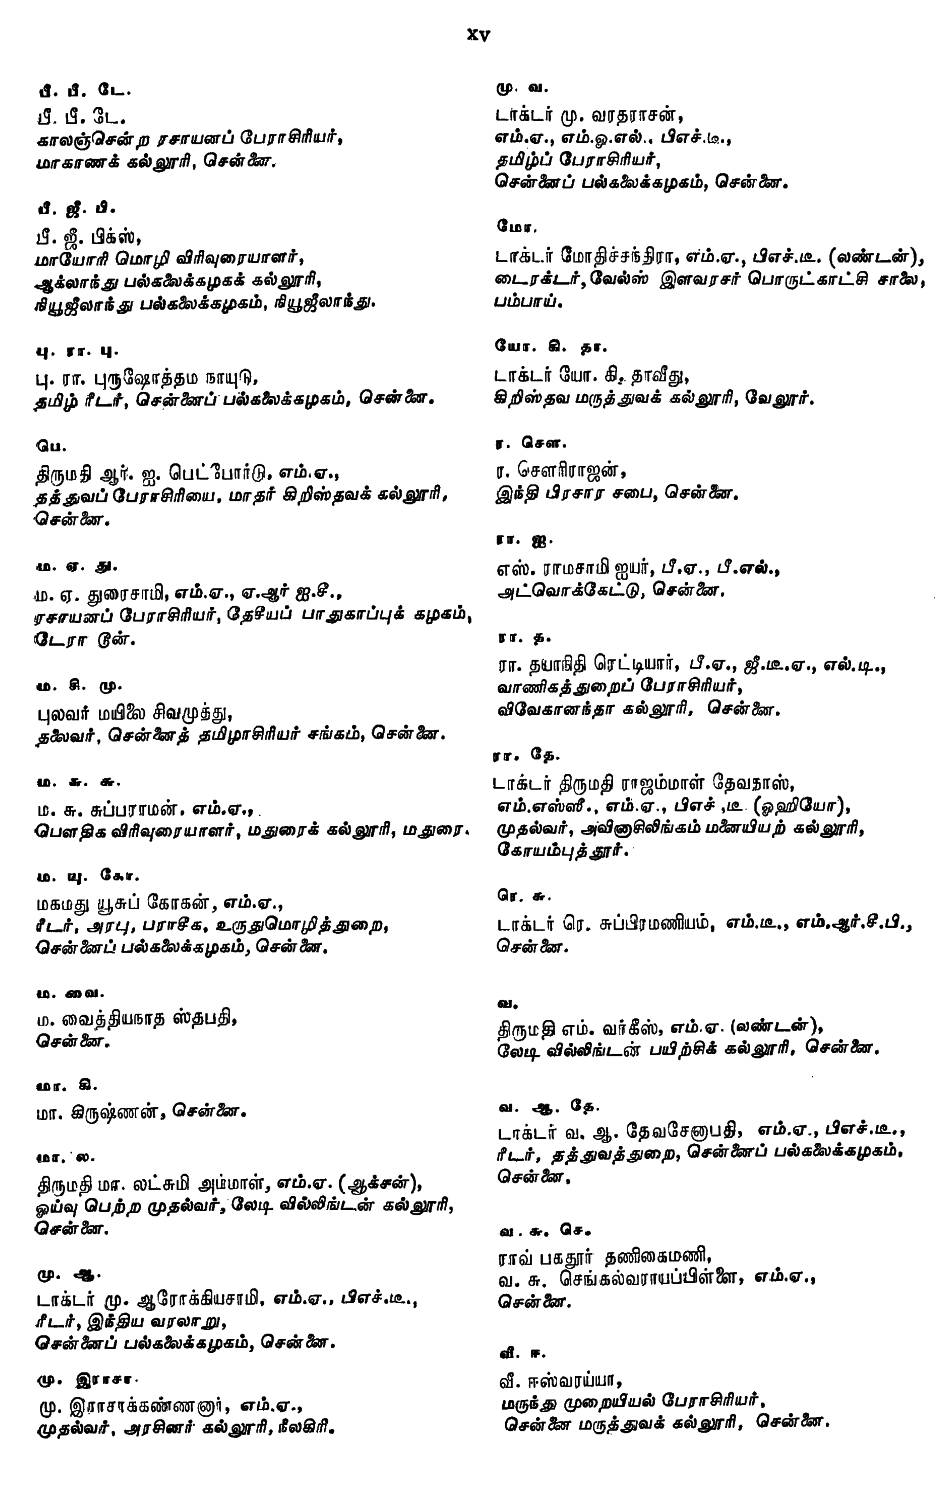 xv
பீ. பி. டே.
பீ. பீ. டே.
காலஞ்சென்ற ரசாயனப் பேராசிரியர்,
மாகாணக் கல்லூரி, சென்னை.
பீ. ஜீ. பி.
பீ. ஜீ. பிக்ஸ்,
மாயோரி மொழி விரிவுரையாளர்,
ஆக்லாந்து பல்கலைக்கழகக் கல்லூரி,
நியூஜீலாந்து பல்கலைக்கழகம், நியூஜீலாந்து.
பு. ரா. பு.
பு. ரா. புருஷோத்தம நாயுடு,
தமிழ் ரீடர், சென்னைப் பல்கலைக்கழகம், சென்னை.
பெ.
திருமதி ஆர். ஐ. பெட்போர்டு, எம்.ஏ.,
தத்துவப் பேராசிரியை, மாதர் கிறிஸ்தவக் கல்லூரி,
சென்னை.
ம. ஏ. து.
ம. ஏ. துரைசாமி, எம்.ஏ., ஏ.ஆர் ஐ.சீ.,
ரசாயனப் பேராசிரியர், தேசீயப் பாதுகாப்புக் கழகம்,
டேரா டூன்.
ம. சி. மு.
புலவர் மயிலை சிவமுத்து,
தலைவர், சென்னைத் தமிழாசிரியர் சங்கம், சென்னை.
ம. சு. சு.
ம. சு. சுப்பராமன், எம்.ஏ.,
பௌதிக விரிவுரையாளர், மதுரைக் கல்லூரி, மதுரை.
ம. யு. கோ.
மகமது யூசுப் கோகன், எம்.ஏ.,
ரீடர், அரபு, பராசீக, உருதுமொழித்துறை,
சென்னைப் பல்கலைக்கழகம், சென்னை.
ம. வை.
ம. வைத்தியநாத ஸ்தபதி,
சென்னை.
மா. கி.
மா. கிருஷ்ணன், சென்னை.
மா. ல.
திருமதி மா. லட்சுமி அம்மாள், எம்.ஏ. (ஆக்சன்),
ஓய்வு பெற்ற முதல்வர், லேடி வில்லிங்டன் கல்லூரி,
சென்னை.
மு. ஆ.
டாக்டர் மு. ஆரோக்கியசாமி, எம்.ஏ., பிஎச்.டீ.,
ரீடர், இந்திய வரலாறு,
சென்னைப் பல்கலைக்கழகம், சென்னை.
மு. இராசா.
மு. இராசாக்கண்ணனார், எம்.ஏ.,
முதல்வர், அரசினர் கல்லூரி, நீலகிரி.
மு. வ.
டாக்டர் மு. வரதராசன்,
எம்.ஏ., எம்.ஓ.எல்., பிஎச்.டீ.,
தமிழ்ப் பேராசிரியர்,
சென்னைப் பல்கலைக்கழகம், சென்னை.
மோ.
டாக்டர் மோதிச்சந்திரா, எம்.ஏ., பிஎச்.டீ. (லண்டன்),
டைரக்டர், வேல்ஸ் இளவரசர் பொருட்காட்சி சாலை,
பம்பாய்.
யோ. கி. தா.
டாக்டர் யோ. கி. தாவீது,
கிறிஸ்தவ மருத்துவக் கல்லூரி, வேலூர்.
ர. சௌ.
ர. சௌரிராஜன்,
இந்தி பிரசார சபை, சென்னை.
ரா. ஐ.
எஸ். ராமசாமி ஐயர், பீ.ஏ., பீ.எல்.,
அட்வொக்கேட்டு, சென்னை.
ரா. த.
ரா. தயாநிதி ரெட்டியார், பீ.ஏ., ஜீ.டீ.ஏ., எல்.டி.,
வாணிகத்துறைப் பேராசிரியர்,
விவேகானந்தா கல்லூரி, சென்னை.
ரா. தே.
டாக்டர் திருமதி ராஜம்மாள் தேவதாஸ்,
எம்.எஸ்ஸீ., எம்.ஏ., பிஎச் .டீ (ஓஹியோ),
முதல்வர், அவினாசிலிங்கம் மனையியற் கல்லூரி,
கோயம்புத்தூர்.
ரெ. சு.
டாக்டர் ரெ. சுப்பிரமணியம், எம்.டீ., எம்.ஆர்.சீ.பி.,
சென்னை.
வ.
திருமதி எம். வர்கீஸ், எம்.ஏ. (லண்டன்),
லேடி வில்லிங்டன் பயிற்சிக் கல்லூரி, சென்னை.
வ. ஆ. தே.
டாக்டர் வ. ஆ. தேவசேனாபதி, எம்.ஏ., பிஎச்.டீ.,
ரீடர், தத்துவத்துறை, சென்னைப் பல்கலைக்கழகம்,
சென்னை.
வ. சு. செ.
ராவ் பகதூர் தணிகைமணி,
வ. சு. செங்கல்வராயப்பிள்ளை, எம்.ஏ.,
சென்னை.
வீ. ஈ.
வீ. ஈஸ்வரய்யா,
மருந்து முறையியல் பேராசிரியர்,
சென்னை மருத்துவக் கல்லூரி, சென்னை.